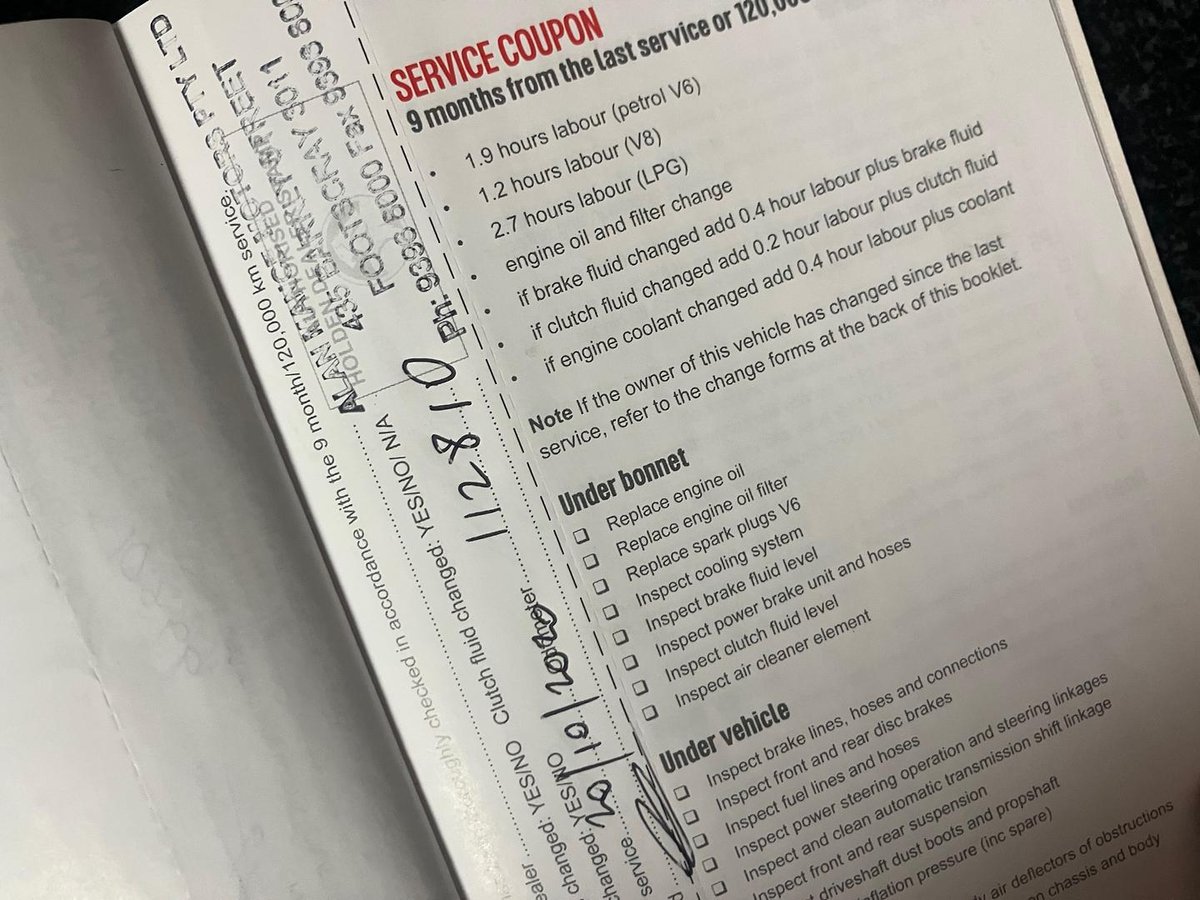 SERVICE COUPON
9 months from the last service or 120,00
1.9 hours labour (petrol V6)
1.2 hours labour (V8)
2.7 hours labour (LPG)
engine oil and filter change
if brake fluid changed add 0.4 hour labour plus brake fluid
if clutch fluid changed add 0.2 hour labour plus clutch fluid
if engine coolant changed add 0.4 hour labour plus coolant
Note If the owner of this vehicle has changed since the last
service, refer to the change forms at the back of this booklet.
Under bonnet
Replace engine oil
Replace engine oil filter
Replace spark plugs V6
Inspect cooling system
Inspect brake fluid level
Inspect power brake unit and hoses
Inspect clutch fluid level
Inspect air cleaner element
Under vehicle
Inspect brake lines, hoses and connections
Inspect front and rear disc brakes
Inspect fuel lines and hoses
Inspect power steering operation and steering linkages
Inspect and clean automatic transmission shift linkage
Inspect front and rear suspension
driveshaft dust boots and propshaft
inflation pressure (inc spare)
air deflectors of obstructions
on chassis and body
PTY LTD
ALAN
HOLDEN DEALER
FOOTSCRAY 3011
Ph: 9393 6000 Fax 9393 600
oughly checked in accordance with the 9 month/120,000 km service.
ealer
changed: YES/NO Clutch fluid changed: YES/NO/ N/A
changed: YES/NO
112810
service
20/10/2020